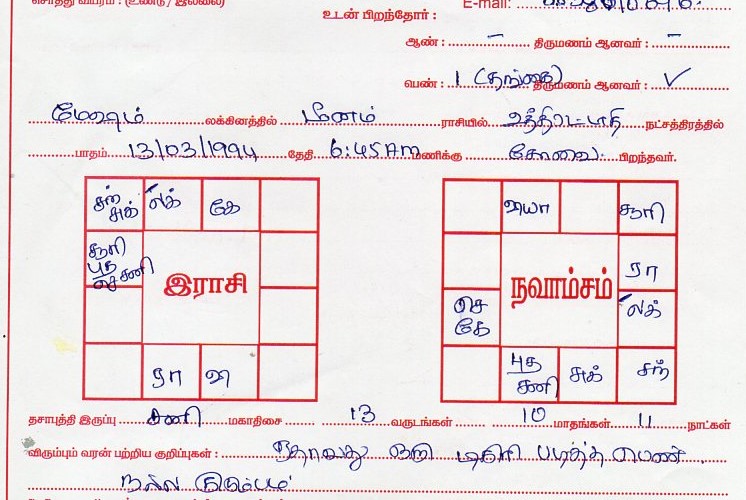 சொத்து விபரம் : (உண்டு / இல்லை) E-mail:
உடன் பிறந்தோர் :
ஆண் : – திருமணம் ஆனவர் : –
பெண் : 1 (தங்கை) திருமணம் ஆனவர் : ✓
மேஷம் லக்கினத்தில் மீனம் ராசியில் உத்திரட்டாதி நட்சத்திரத்தில்
பாதம் 13/03/1994 தேதி 6:45 AM மணிக்கு கோவை பிறந்தவர்.
சந் சுக் லக் கே
சூரி புத செ சனி
இராசி
ரா வி
வியா சூரி
ரா
நவாம்சம்
செ கே லக்
புத சனி சுக் சந்
தசாபுத்தி இருப்பு சனி மகாதிசை 13 வருடங்கள் 10 மாதங்கள் 11 நாட்கள்
விரும்பும் வரன் பற்றிய குறிப்புகள் : ஏதாவது ஒரு டிகிரி படித்த பெண்.
நல்ல குடும்பம்